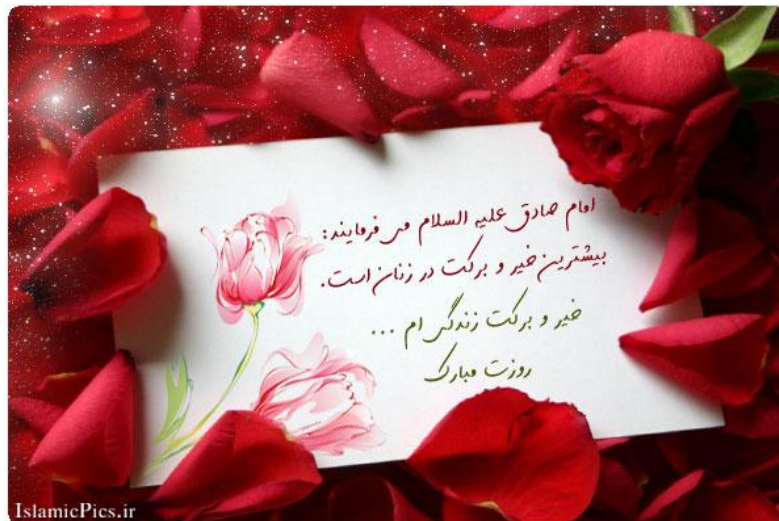 امام صادق علیه السلام می فرمایند:
بیشترین خیر و برکت در زنان است.
خیر و برکت زندگی ام ...
روزت مبارک
IslamicPics.ir